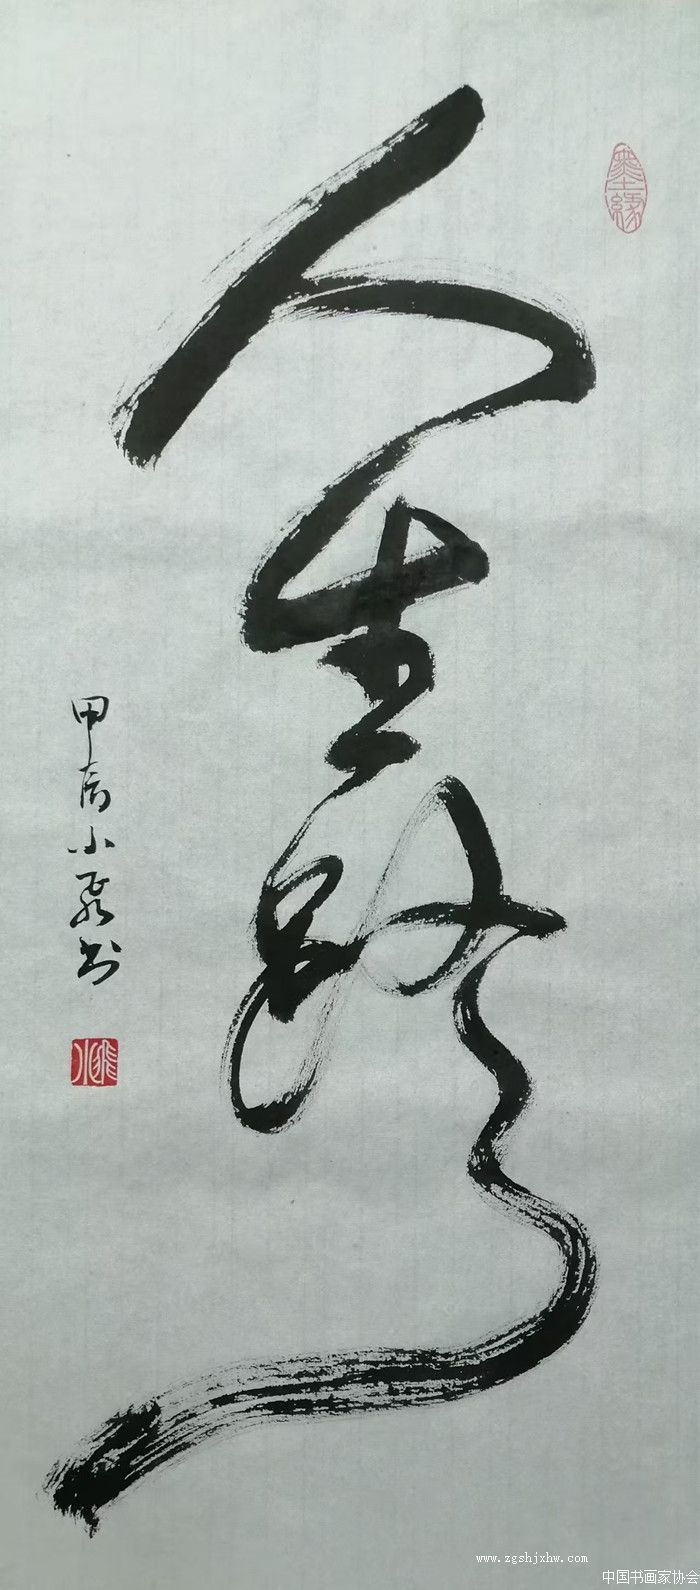 墨緣
人生路
甲辰小飛书
www.zgshjxhw.com
中国书画家协会